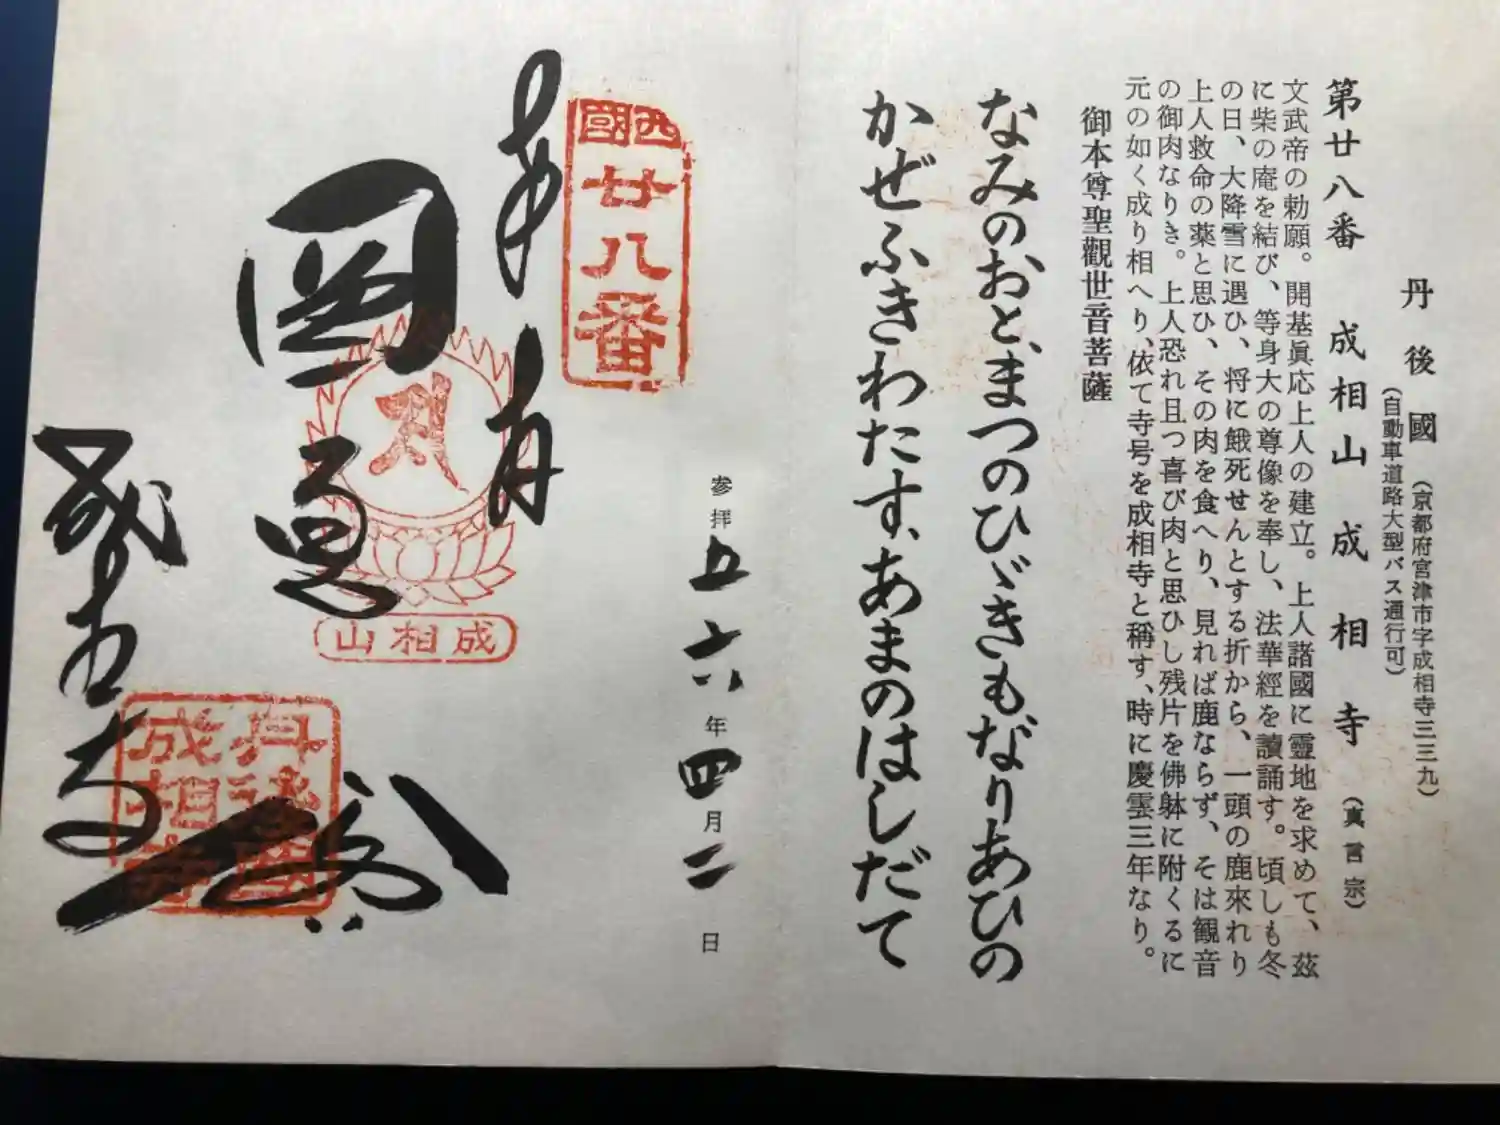 丹後國(京都府宮津市字成相寺三三九)
(自動車道路大型バス通行可)
第廿八番 成相山成相寺(真言宗)
文武帝の勅願。開基眞応上人の建立。上人諸國に靈地を求めて、茲
に柴の庵を結び、等身大の尊像を奉し、法華經を讀誦す。頃しも冬
の日、大降雪に遇ひ、将に餓死せんとする折から、一頭の鹿來れり
上人救命の薬と思ひ、その肉を食へり、見れば鹿ならず、そは観音
の御肉なりき。上人恐れ且つ喜び肉と思ひし残片を佛躰に附くるに
元の如く成り相へり、依て寺号を成相寺と稱す、時に慶雲三年なり。
御本尊聖觀世音菩薩
なみのおと、まつのひゞきもなりあひの
かぜふきわたす、あまのはしだて
参拝五六年四月二日
西國
廿八番
奉拝
成相山
成相寺
丹後國
成相寺